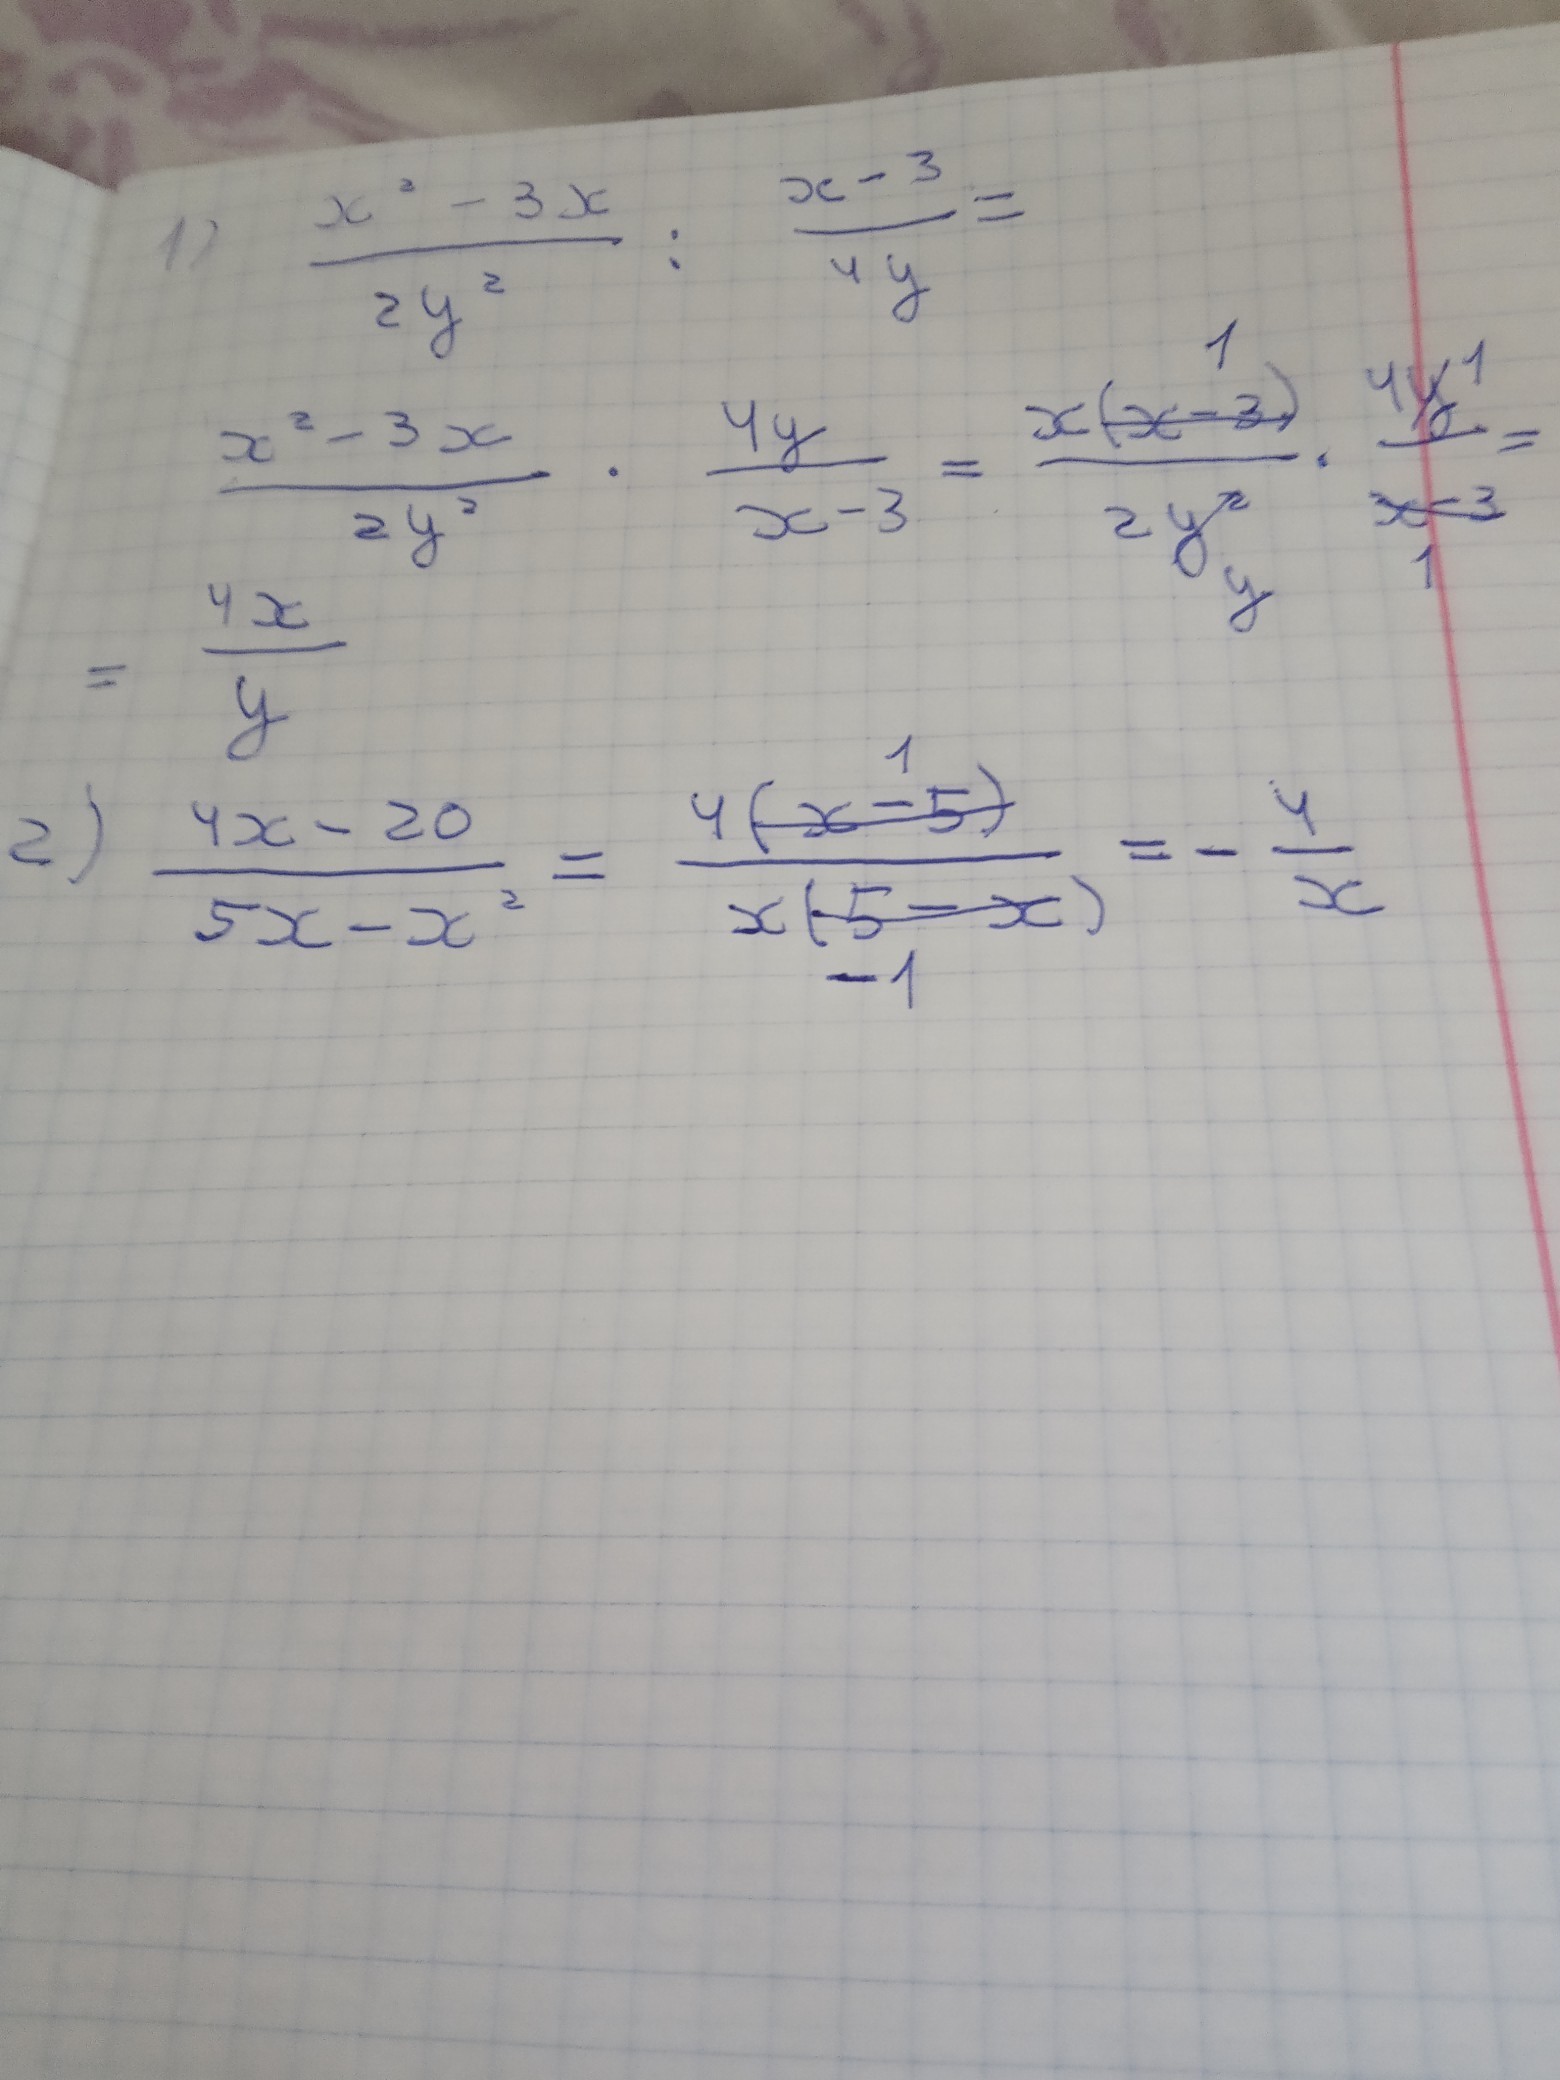 1) (x² - 3x)/(2y²) : (x - 3)/(4y) =
(x² - 3x)/(2y²) · (4y)/(x - 3) = (x(x - 3) 1)/(2y² y) · (4y 1)/(x - 3 1) =
= (4x)/(y)
2) (4x - 20)/(5x - x²) = (4(x - 5) 1)/(x(5 - x) -1) = - 4/x